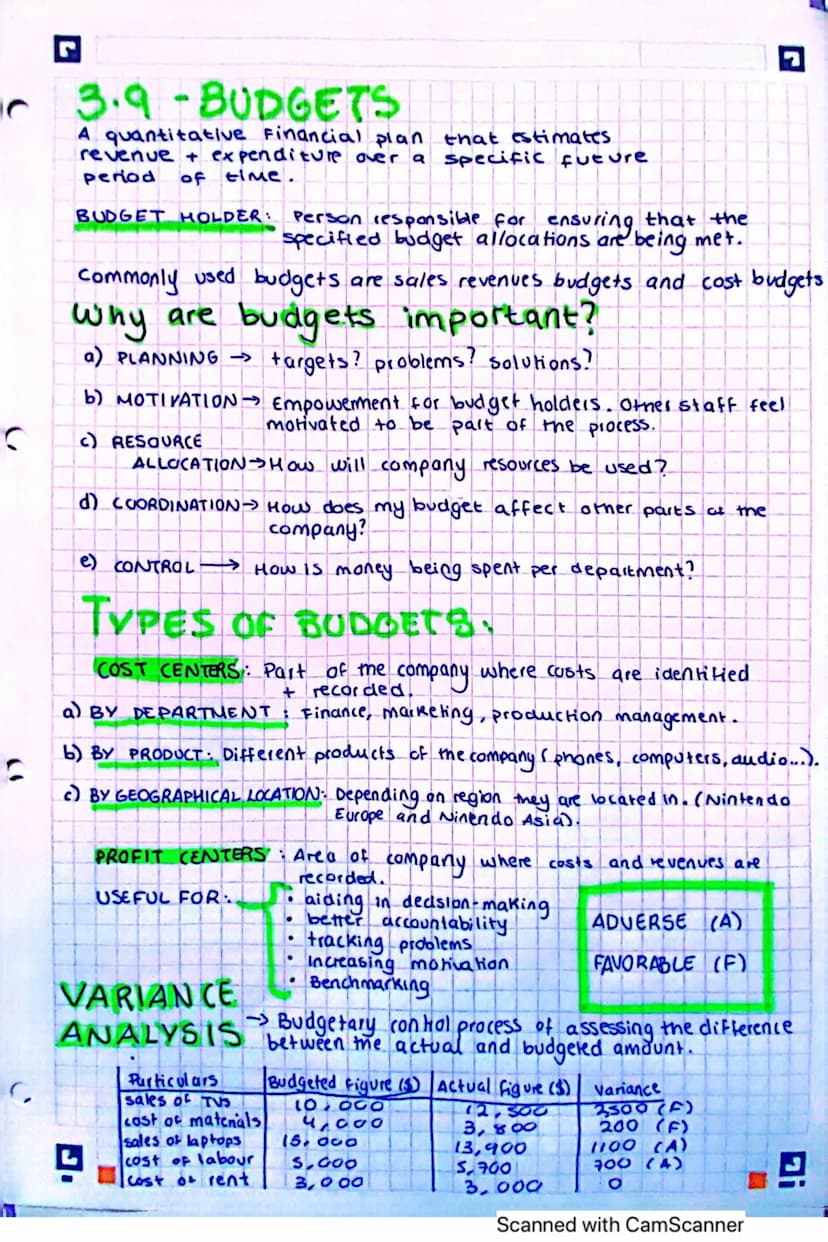 3.9 - BUDGETS
A quantitative Financial plan that estimates
revenue + expenditure over a specific future
period of time.
BUDGET HOLDER: Person responsible for ensuring that the
specified budget allocations are being met.
Commonly used budgets are sales revenues budgets and cost budgets
Why are budgets important?
a) PLANNING → targets? problems? solutions?
b) MOTIVATION → Empowerment for budget holders. Other staff feel
motivated to be part of the process.
c) RESOURCE
ALLOCATION → How will company resources be used?
d) COORDINATION → How does my budget affect other parts of the
company?
e) CONTROL → How is money being spent per department?
TYPES OF BUDGETS:
COST CENTERS: Part of the company where costs are identified
+ recorded.
a) BY DEPARTMENT: Finance, marketing, production management.
b) BY PRODUCT: Different products of the company (phones, computers, audio...).
c) BY GEOGRAPHICAL LOCATION: Depending on region they are located in. (Nintendo
Europe and Ninendo Asia).
PROFIT CENTERS: Area of company where costs and revenues are
recorded.
USEFUL FOR:
• aiding in decision-making
• better accountability
• tracking problems
• Increasing motivation
• Benchmarking
ADVERSE (A)
FAVORABLE (F)
VARIANCE
ANALYSIS → Budgetary control process of assessing the difference
between the actual and budgeted amount.
Particulars | Budgeted Figure ($) | Actual figure ($) | Variance
sales of TVs | 10,000 | 12,500 | 2500 (F)
cost of materials | 4,000 | 3,800 | 200 (F)
sales of laptops | 15,000 | 13,900 | 1100 (A)
cost of labour | 5,000 | 5,700 | 700 (A)
cost of rent | 3,000 | 3,000 | 0
Scanned with CamScanner